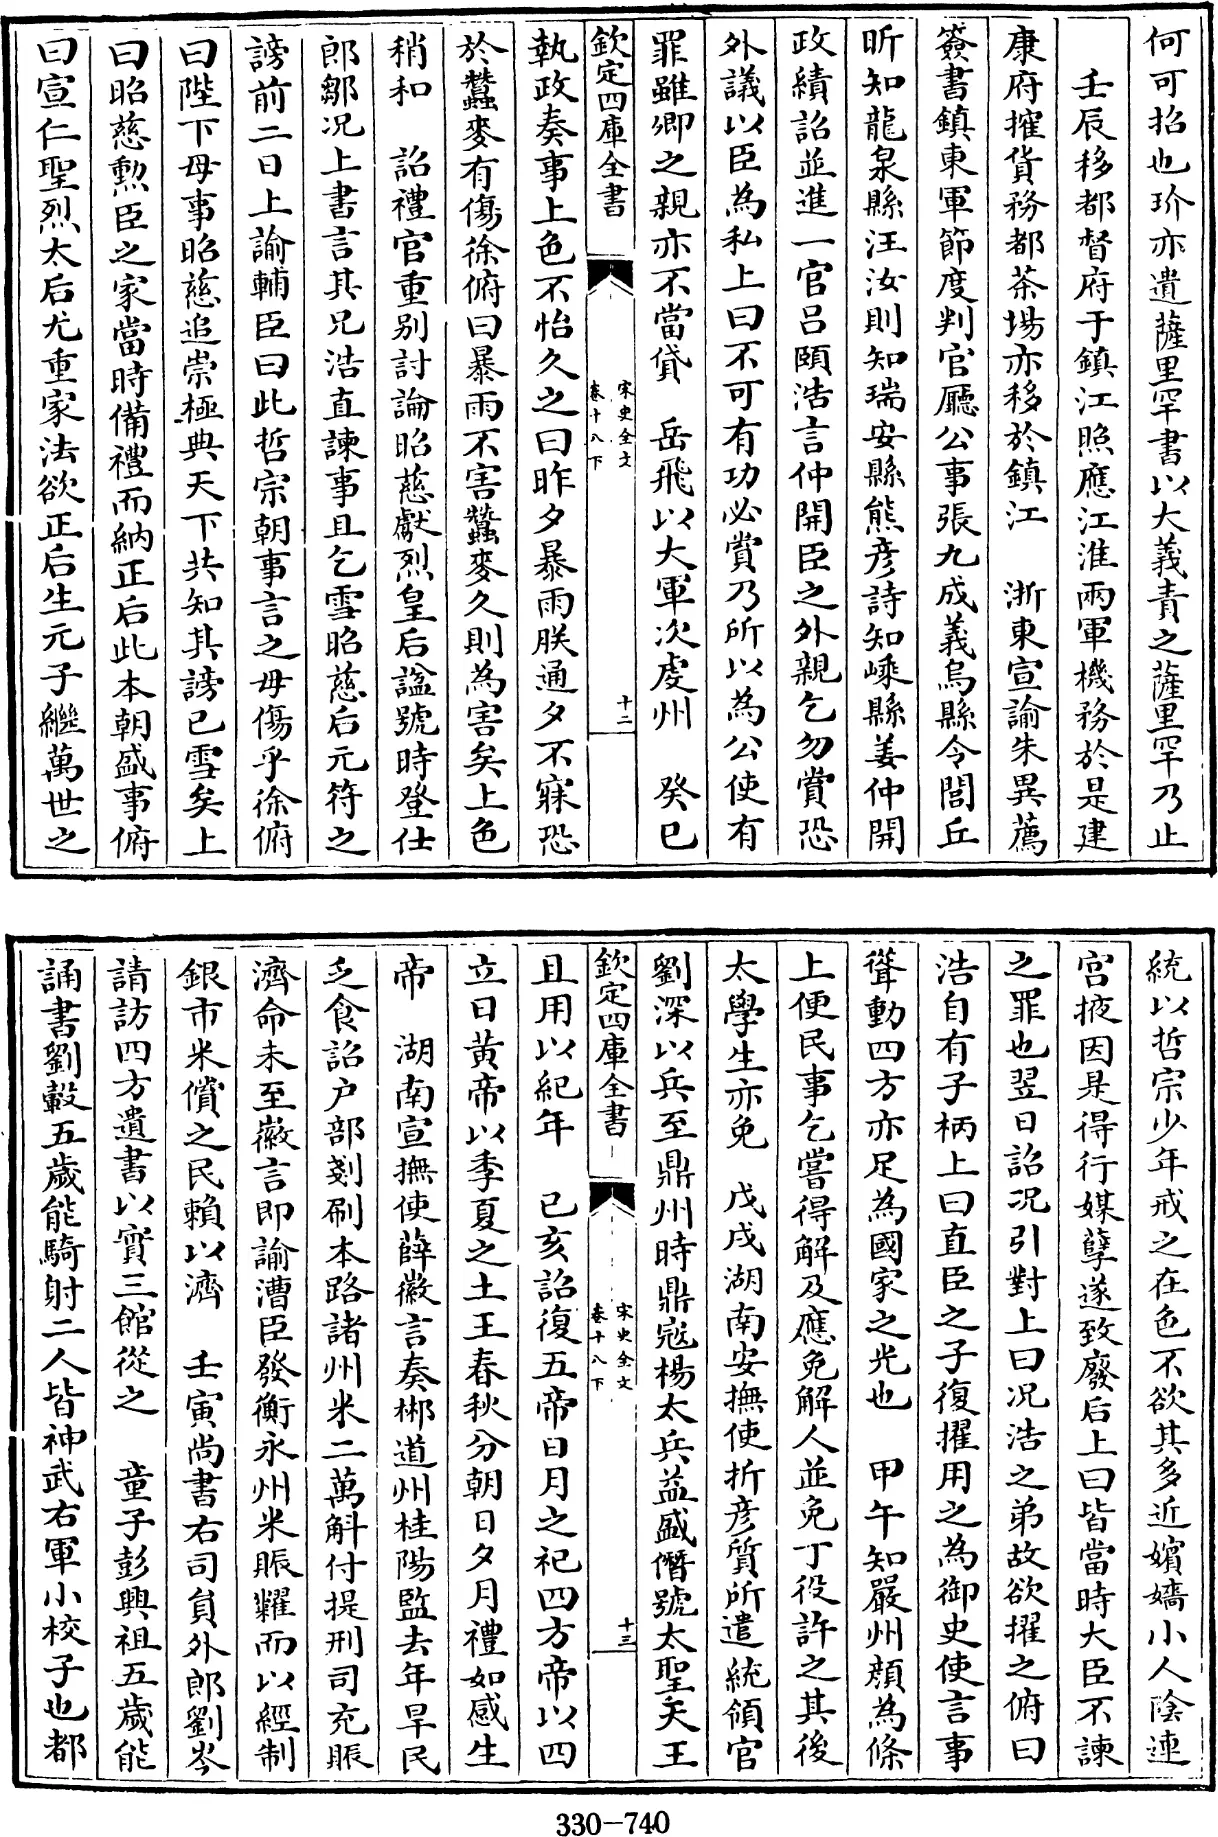 何可招也玠亦遺薩里罕書以大義責之薩里罕乃止
壬辰移都督府于鎮江照應江淮兩軍機務於是建
康府搉貨務都茶場亦移於鎮江　浙東宣諭朱異薦
簽書鎮東軍節度判官廳公事張九成義烏縣令閭丘
昕知龍泉縣汪汝則知瑞安縣熊彦詩知嵊縣姜仲開
政績詔並進一官吕頤浩言仲開臣之外親乞勿賞恐
外議以臣為私上曰不可有功必賞乃所以為公使有
罪雖卿之親亦不當貸　岳飛以大軍次虔州　癸巳
欽定四庫全書
宋史全文
卷十八下
十二
執政奏事上色不怡久之曰昨夕暴雨朕通夕不寐恐
於蠶麥有傷徐俯曰暴雨不害蠶麥久則為害矣上色
稍和　詔禮官重别討論昭慈獻烈皇后諡號時登仕
郎鄒况上書言其兄浩直諫事且乞雪昭慈后元符之
謗前二日上諭輔臣曰此哲宗朝事言之毋傷乎徐俯
曰陛下毋事昭慈追崇極典天下共知其謗已雪矣上
曰昭慈勲臣之家當時備禮而納正后此本朝盛事俯
曰宣仁聖烈太后尤重家法欲正后生元子繼萬世之
統以哲宗少年戒之在色不欲其多近嬪嬙小人陰連
宫掖因是得行媒孽遂致廢后上曰皆當時大臣不諫
之罪也翌日詔况引對上曰况浩之弟故欲擢之俯曰
浩自有子柄上曰直臣之子復擢用之為御史使言事
聳動四方亦足為國家之光也　甲午知嚴州顔為條
上便民事乞嘗得解及應免解人並免丁役許之其後
太學生亦免　戊戌湖南安撫使折彦質所遣統領官
劉深以兵至鼎州時鼎寇楊太兵益盛僭號太聖天王
欽定四庫全書
宋史全文
卷十八下
十三
且用以紀年　已亥詔復五帝日月之祀四方帝以四
立日黄帝以季夏之土王春秋分朝日夕月禮如感生
帝　湖南宣撫使薛徽言奏郴道州桂陽監去年旱民
乏食詔户部剗刷本路諸州米二萬斛付提刑司充賑
濟命未至徽言即諭漕臣發衡永州米賑糶而以經制
銀市米償之民賴以濟　壬寅尚書右司員外郎劉岑
請訪四方遺書以實三館從之　童子彭興祖五歲能
誦書劉轂五歲能騎射二人皆神武右軍小校子也都
330-740